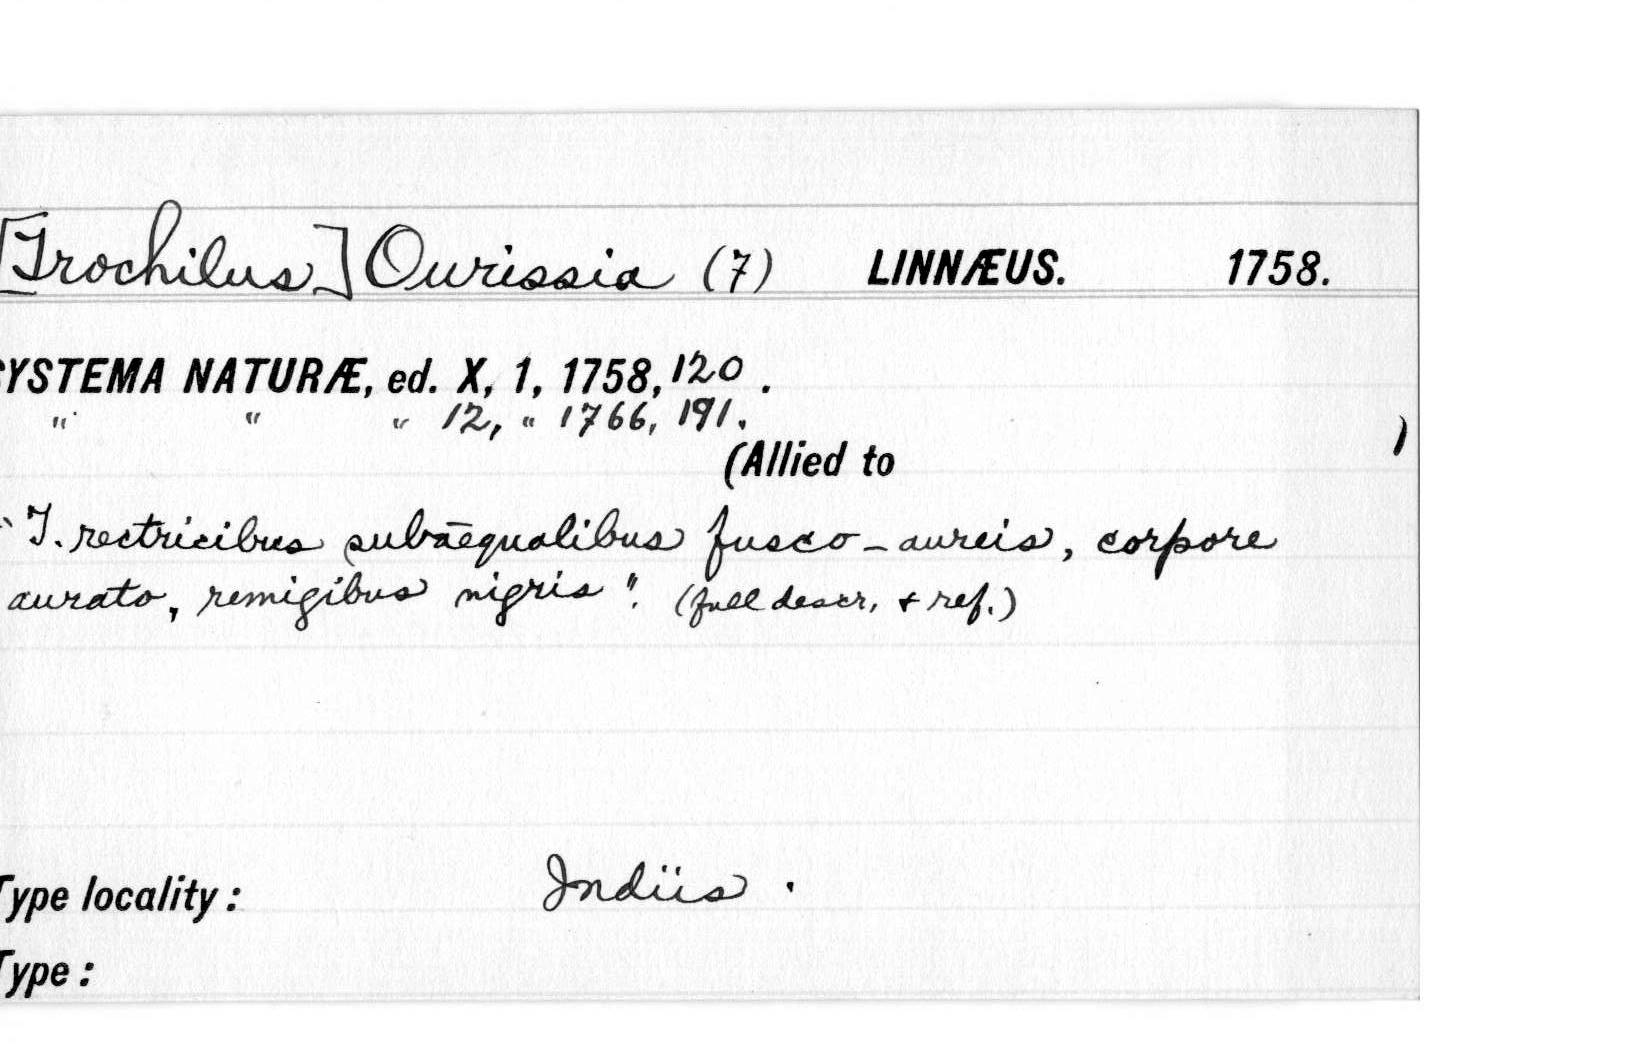 [Trochilus] Ourissia (7) LINNÆUS. 1758.
SYSTEMA NATURÆ, ed. X, 1, 1758, 120.
" " " 12, " 1766, 191.
(Allied to )
"T. rectricibus subaequalibus fusco-aureis, corpore
aurato, remigibus nigris". (full descr. & ref.)
Type locality: Indiis.
Type: